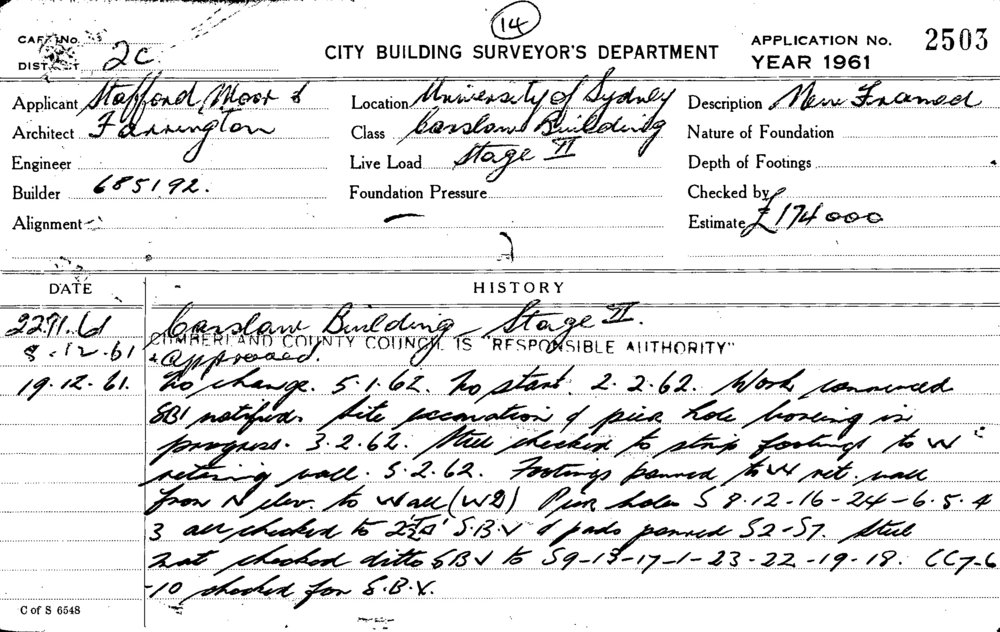 14
CARD No.
DISTRICT 2C
CITY BUILDING SURVEYOR'S DEPARTMENT
APPLICATION No. 2503
YEAR 1961
Applicant Stafford Moor &
Architect Farrington
Engineer
Builder 685192.
Alignment
Location University of Sydney
Class Carslaw Building
Live Load Stage II
Foundation Pressure
Description New Framed
Nature of Foundation
Depth of Footings
Checked by
Estimate £174000
DATE
HISTORY
22.11.61 Carslaw Building Stage II.
CUMBERLAND COUNTY COUNCIL IS "RESPONSIBLE AUTHORITY"
8.12.61 approved.
19.12.61. No change. 5.1.62. No start. 2.2.62. Work commenced
SBI notified. Site excavation & pier hole boreing in
progress. 3.2.62. Steel checked to strip footings to W
retaining wall. 5.2.62. Footings poured to W ret. wall
from N elev. to Wall (W2) Pier holes S 8-12-16-24-6-5-4
3 all checked to S.B.V & pads poured S2-S7. Steel
mat checked ditto SBV to S9-13-17-1-23-22-19-18. CC7-6
-10 checked for S.B.V.
C of S 6548